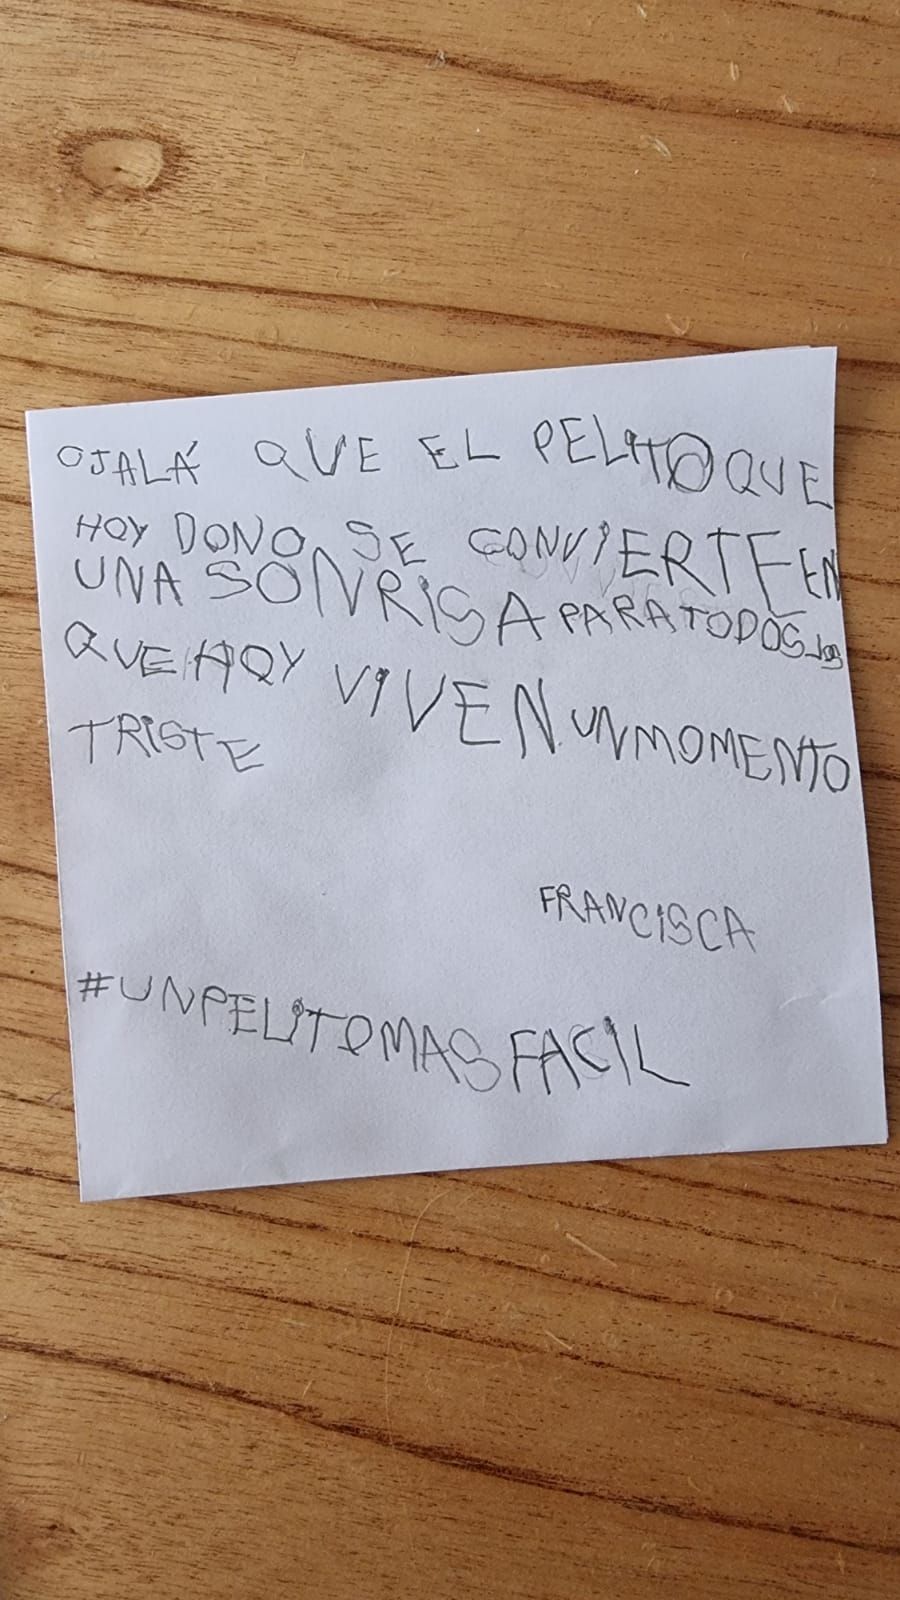 OJALÁ QUE EL PELITO QUE
HOY DONO SE CONVIERTE EN
UNA SONRISA PARA TODOS LOS
QUE HOY VIVEN UN MOMENTO
TRISTE
FRANCISCA
#UNPELITOMASFACIL